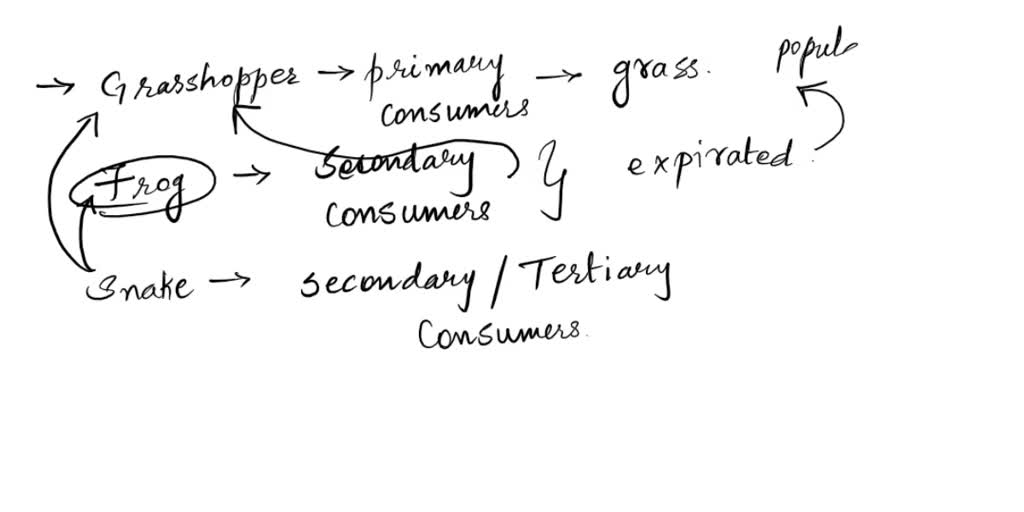 → Grasshopper → primary consumers → grass. popul
Frog → secondary consumers } expirated
Snake → secondary / Tertiary
consumers.